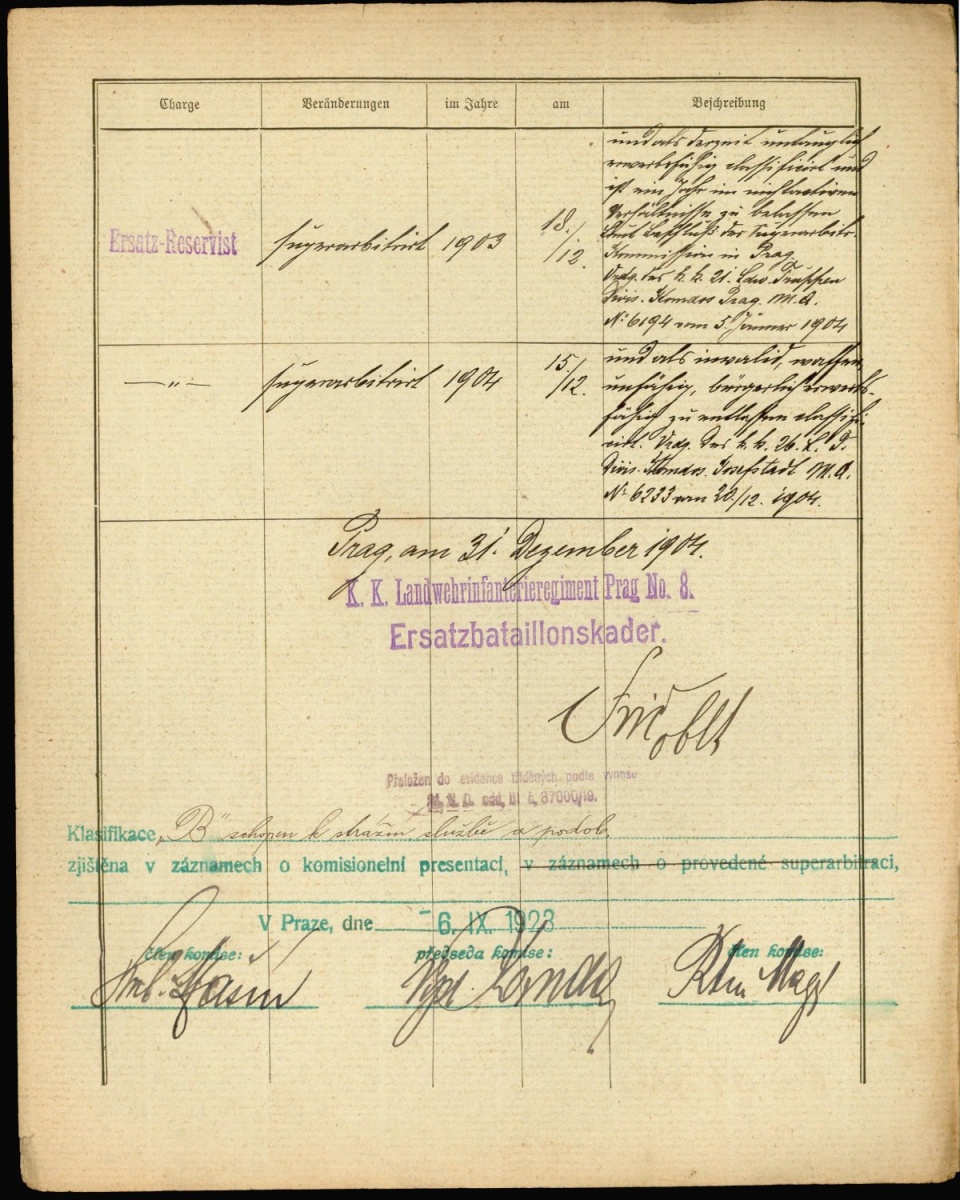 Charge Veränderungen im Jahre am Beschreibung
Ersatz-Reservist superarbitrirt 1903 18./12.
und als derzeit untauglich
erwerbsfähig classificirt und
ist ein Jahr im nichtactiven
Verhältnisse zu belassen
Laut Beschluß der Superarbitr.
Kommission in Prag.
Vrdg. des k. k. 21. Ldw. Truppen
Divis. Komdos Prag. M. A.
No 6194 vom 5. Jänner 1904
—„— superarbitrirt 1904 15./12.
und als invalid, waffen-
unfähig, bürgerlich erwerbs-
fähig zu entlassen classifi-
cirt. Vrdg. des k. k. 26. L. T.
Divis. Komdos. Josefstadt M. A.
No 6233 vom 20./12. 1904.
Prag, am 31. Dezember 1904.
K. K. Landwehrinfanterieregiment Prag No. 8.
Ersatzbataillonskader.
oblt
Přeložen do evidence tříděných podle výnosu
M. N. O. odd. III č. 87000/19.
Klasifikace „B" schopen k strážní službě a podob.
zjištěna v záznamech o komisionelní presentaci, v záznamech o provedené superarbitraci,
V Praze, dne -6. IX. 1923
člen komise: předseda komise: člen komise: